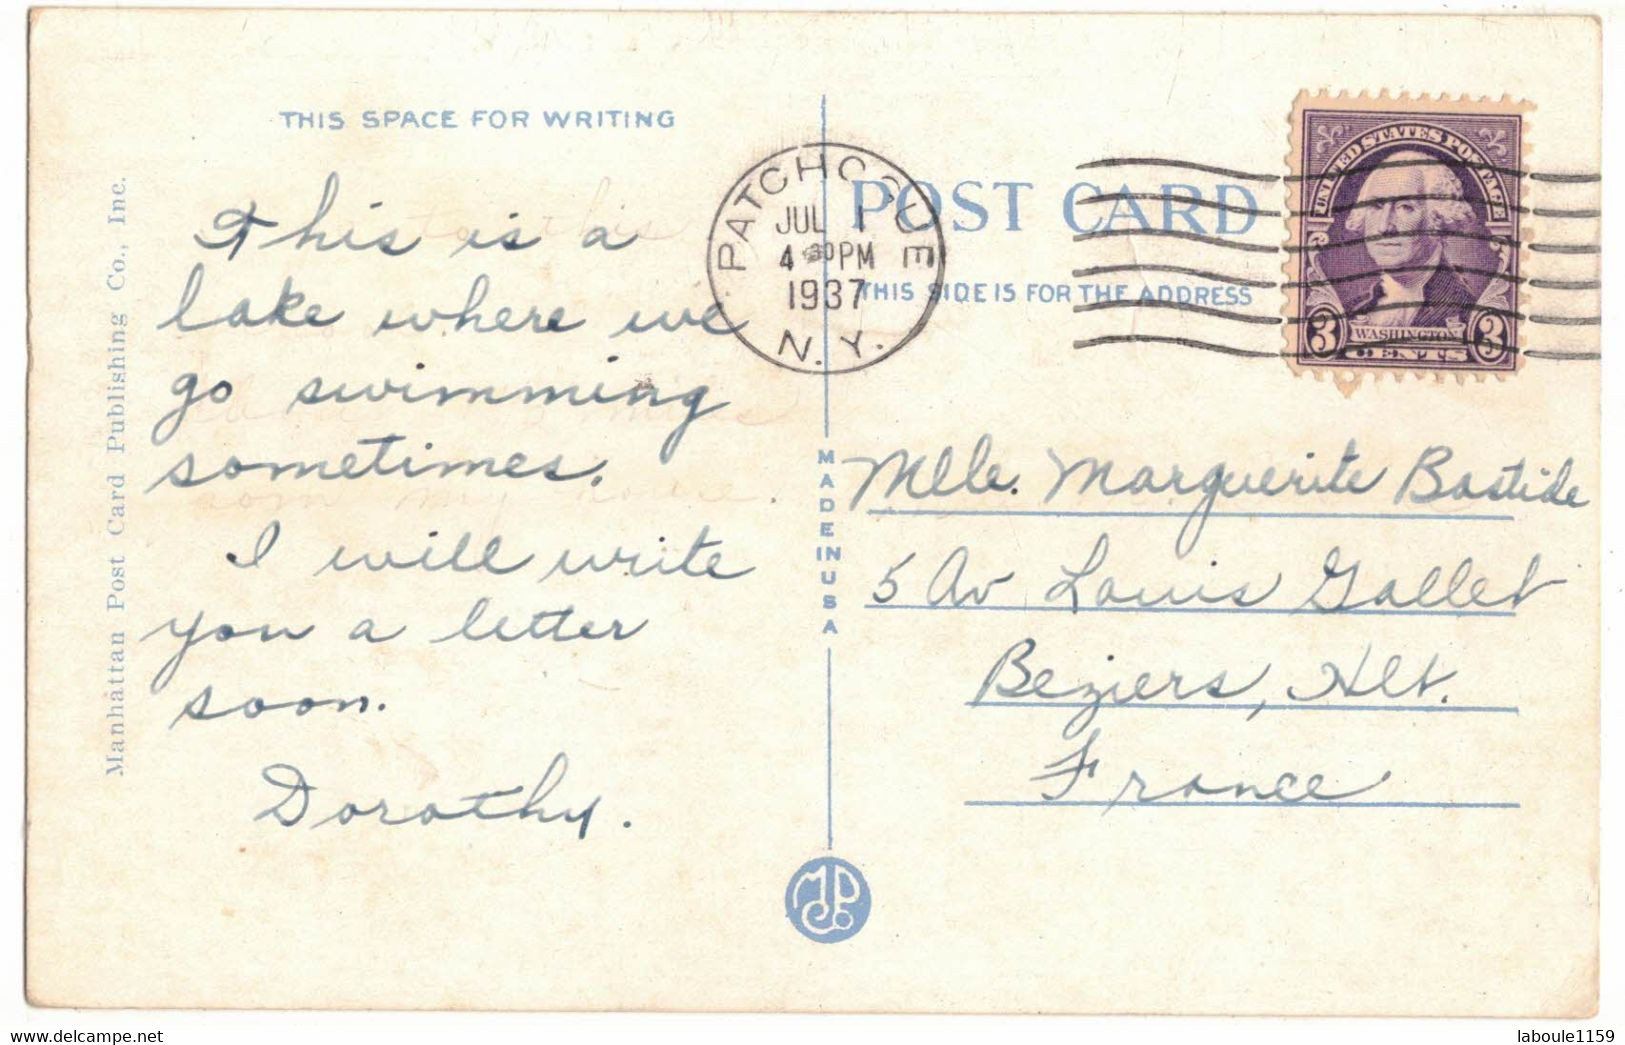 THIS SPACE FOR WRITING
This is a
lake where we
go swimming
sometimes.
I will write
you a letter
soon.
Dorothy.
Manhattan Post Card Publishing Co., Inc.
PATCHOGUE
JUL 1
4 30 PM
1937
N.Y.
POST CARD
THIS SIDE IS FOR THE ADDRESS
UNITED STATES POSTAGE
3 WASHINGTON 3
CENTS
MADE IN USA
Mlle. Marguerite Bastide
5 Av Louis Gallet
Beziers, Hlt.
France
www.delcampe.net
laboule1159